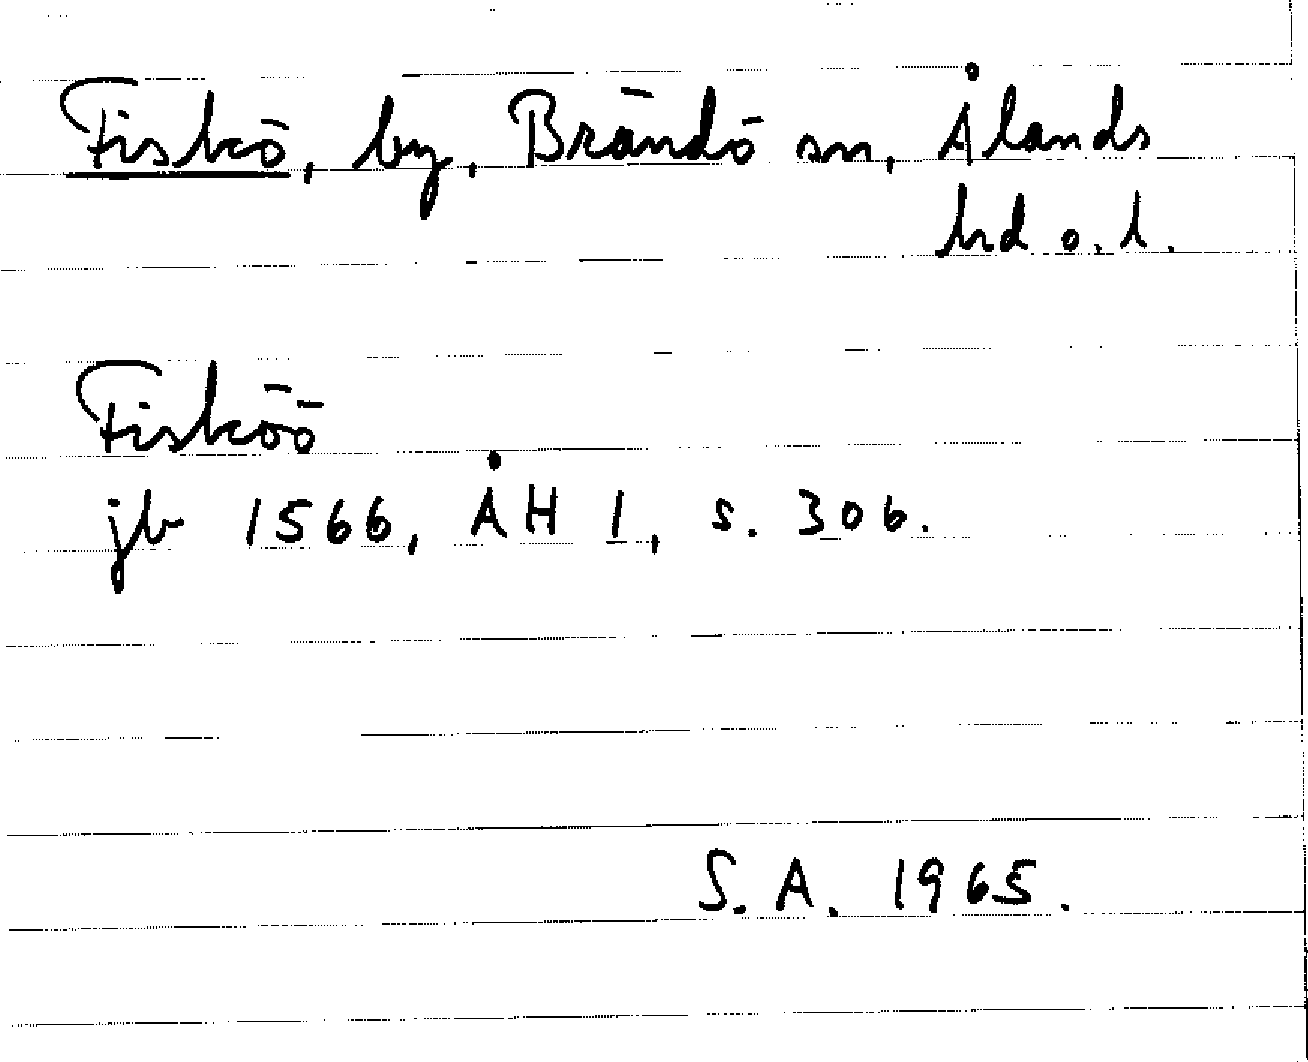 Fiskö, by, Brändö sn, Ålands
hd o. l.
Fisköö
jb 1566, ÅH 1, s. 306.
S. A. 1965.